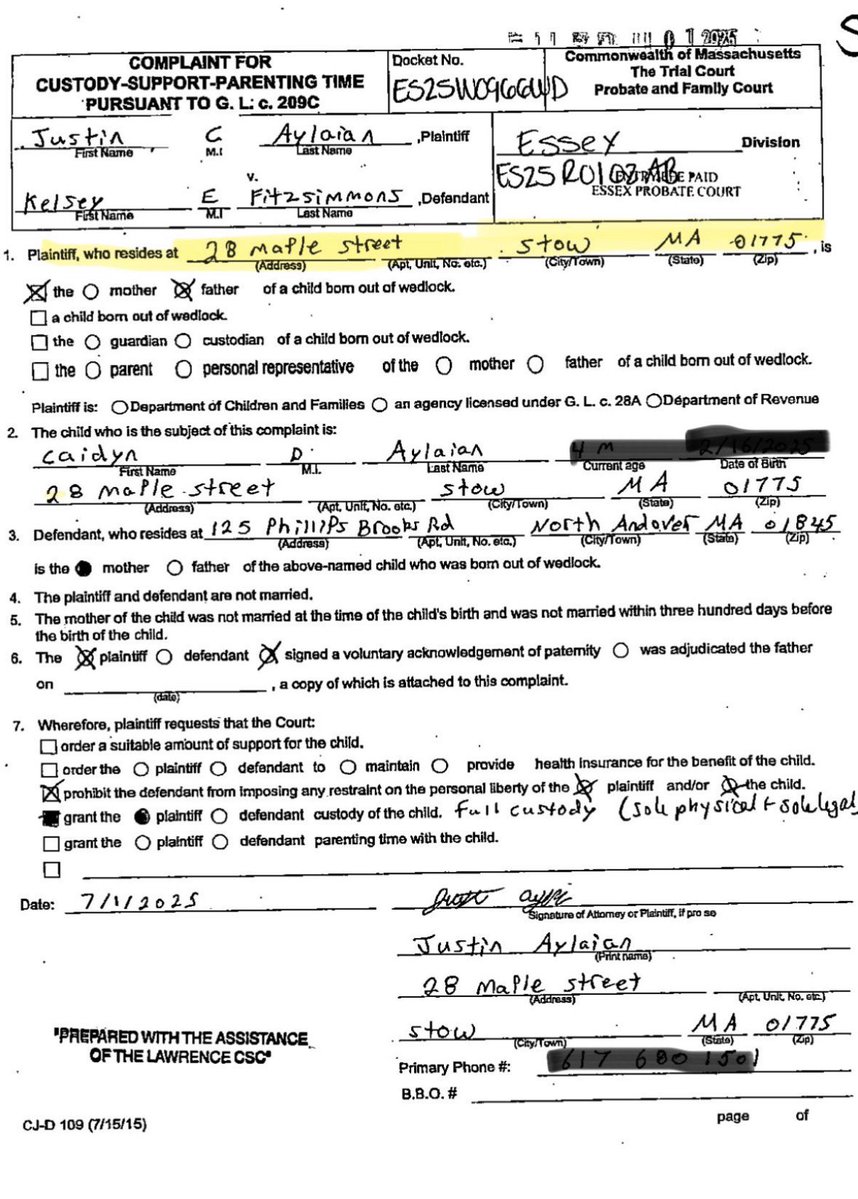 JUL 0 1 2025
COMPLAINT FOR
CUSTODY-SUPPORT-PARENTING TIME
PURSUANT TO G. L. c. 209C
Docket No.
ES25W0966WD
Commonwealth of Massachusetts
The Trial Court
Probate and Family Court
Justin C Aylaian ,Plaintiff
First Name M.I Last Name
v.
Kelsey E Fitzsimmons ,Defendant
First Name M.I Last Name
Essex Division
ES25R0103AB
BE PAID
ESSEX PROBATE COURT
1. Plaintiff, who resides at 28 Maple street Stow MA 01775, is
(Address) (Apt, Unit, No. etc.) (City/Town) (State) (Zip)
the mother father of a child born out of wedlock.
a child born out of wedlock.
the guardian custodian of a child born out of wedlock.
the parent personal representative of the mother father of a child born out of wedlock.
Plaintiff is: Department of Children and Families an agency licensed under G. L. c. 28A Department of Revenue
2. The child who is the subject of this complaint is:
Caidyn D. Aylaian
First Name M.I. Last Name Current age Date of Birth
28 Maple street Stow MA 01775
(Address) (Apt, Unit, No. etc.) (City/Town) (State) (Zip)
3. Defendant, who resides at 125 Phillips Brooks Rd North Andover MA 01845
(Address) (Apt, Unit, No. etc.) (City/Town) (State) (Zip)
is the mother father of the above-named child who was born out of wedlock.
4. The plaintiff and defendant are not married.
5. The mother of the child was not married at the time of the child's birth and was not married within three hundred days before
the birth of the child.
6. The plaintiff defendant signed a voluntary acknowledgement of paternity was adjudicated the father
on , a copy of which is attached to this complaint.
(date)
7. Wherefore, plaintiff requests that the Court:
order a suitable amount of support for the child.
order the plaintiff defendant to maintain provide health insurance for the benefit of the child.
prohibit the defendant from imposing any restraint on the personal liberty of the plaintiff and/or the child.
grant the plaintiff defendant custody of the child. Full custody (sole physical + sole legal
grant the plaintiff defendant parenting time with the child.
Date: 7/1/2025
Signature of Attorney or Plaintiff, if pro se
Justin Aylaian
(Print name)
28 Maple street
(Address) (Apt, Unit, No. etc.)
"PREPARED WITH THE ASSISTANCE
OF THE LAWRENCE CSC"
Stow MA 01775
(City/Town) (State) (Zip)
Primary Phone #:
B.B.O. #
CJ-D 109 (7/15/15)
page of